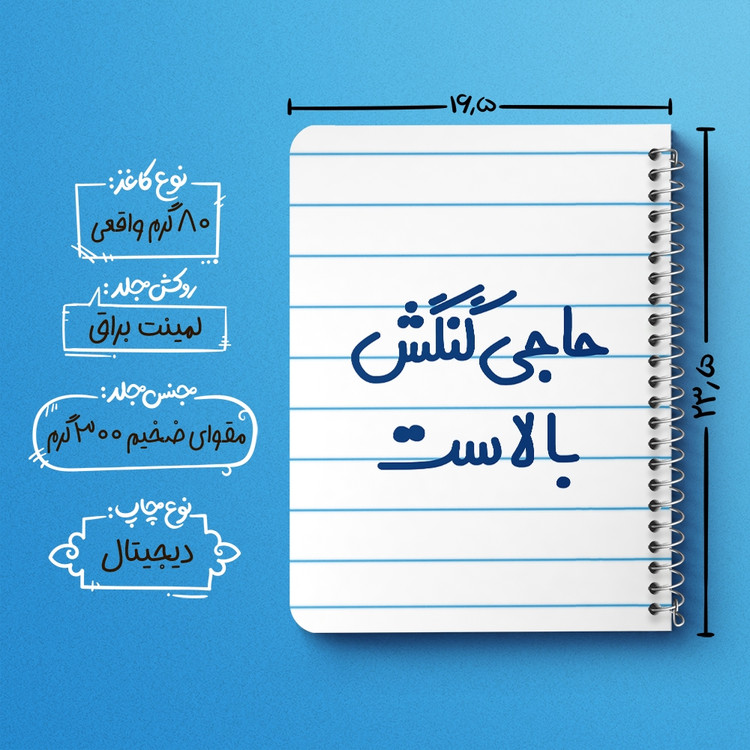 ۱۹,۵
نوع کاغذ:
۸۰ گرم واقعی
روکش مجلد:
لمینت براق
جنس مجلد:
مقوای ضخیم ۳۰۰ گرم
نوع چاپ:
دیجیتال
حاجی گنگش
بالاست
۲۳,۵